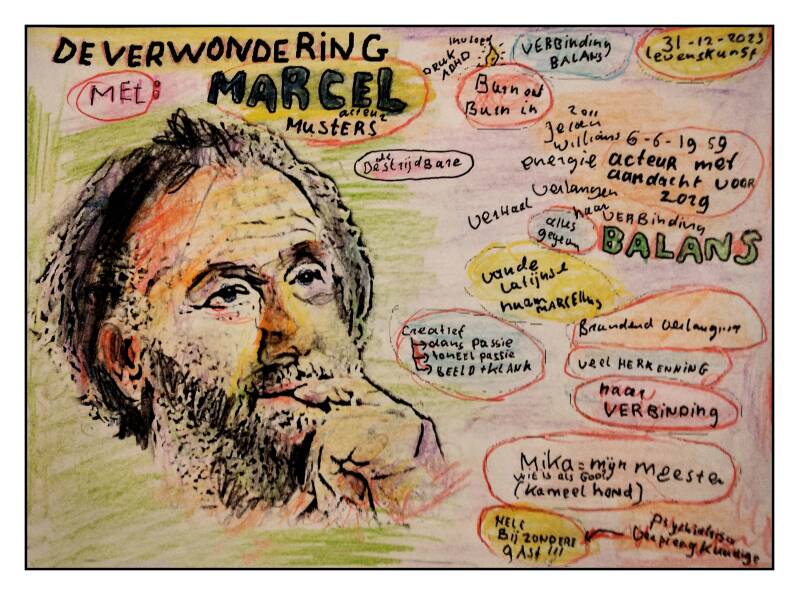 DE VERWONDERING
MET:
MARCEL
acteur
MUSTERS
invloed
DRUK
ADHD
VERBinding
BALANS
31-12-2023
levenskunst
Burn out
Burn in
De strijdbare
Jeroen
willems
6-6-1959
energie
acteur met
aandacht voor
zorg
verhaal
verlangen
naar
VERBinding
BALANS
alles
geven
van de
Latijnse
naam MARCELLUS
Creatief
dans passie
toneel passie
BEELD + KLANK
Brandend verlangen
veel HERKENNING
naar
VERBINDING
Mika = mijn meester
wit is als GODIN
(Kameel hond)
HELE
BIJZONDERE
gAst!!!
Psychiatrisch
Verpleegkundige